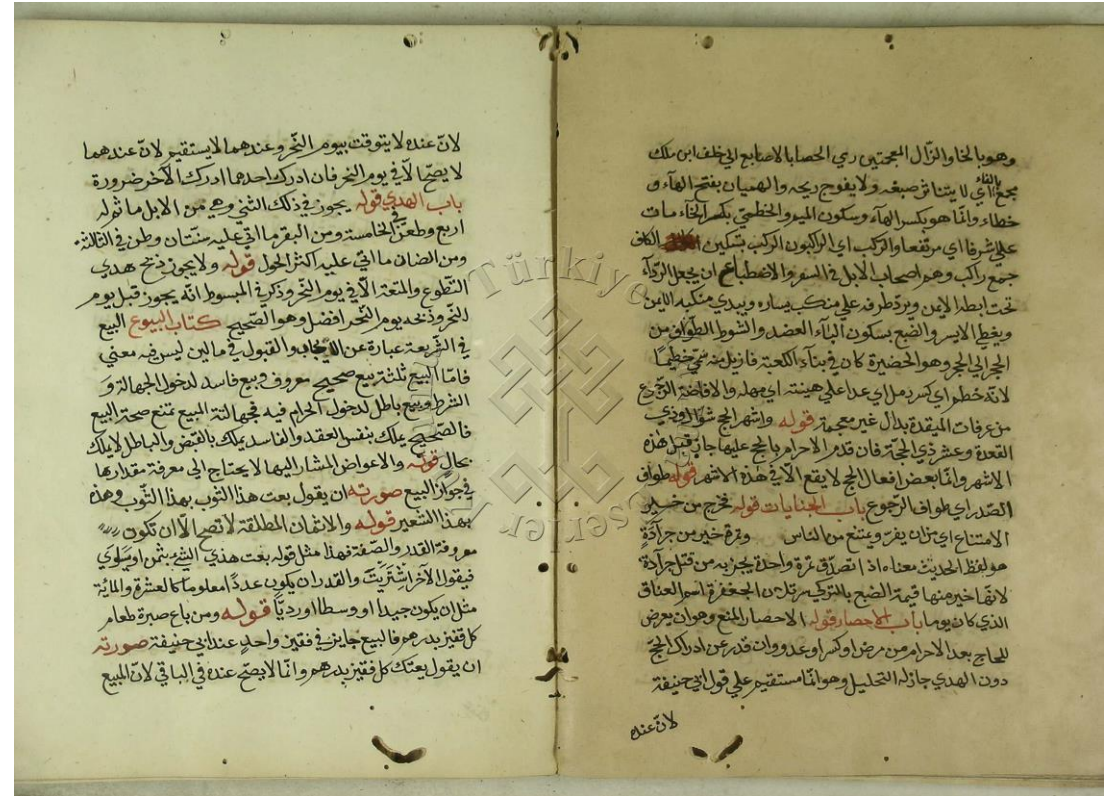 وهو بالخا والذال المعجمتين رمي الحصا بالاصابع الي خلف ابن ملك
مجمع بالفاء اي لا يتناثر صبغه ولا يفوح ريحه والهميان بفتح الهاء و
خطاء وانما هو بكسر الهآء وسكون الميم والخطمي بكسر الخاء مات
علي شرفا اي مرتفعا والركب اي الراكبون الركب بتسكين الكاف
جمع راكب وهم اصحاب الابل في السفر والاضطباع ان يجعل الردآء
تحت ابطه الايمن ويرد طرفه علي منكب يساره ويبدي منكبه الايمن
ويغطي الايسر والضبع بسكون البآء العضد والشوط الطواف من
الحجر الي الحجر وهو الحضيرة كان في بناء الكعبة فازيل منه سمي حطيما
لانه حطم اي كسر رمل اي عدا علي هينته اي مهله والافاضة الرجوع
من عرفات الميقدة بدال غير معجمة قوله واشهر الحج شوال وذي
القعدة وعشر ذي الحجة فان قدم الاحرام بالحج عليها جاز قبل هذه
الاشهر وانما بعض افعال الحج لا يقع الا في هذه الاشهر قوله طواف
الصدر اي طواف الرجوع باب الجنايات قوله مخرج من خير
الامتناع اي من ان يفر ويمتنع من الناس وتمرة خير من جرآدة
هو لفظ الحديث معناه اذا تصدق تمرة واحدة يجزيه من قتل جرآدة
لانها خير منها قيمة الضبع بالتركي الجعفرة اسم العناق
الذي كان يوما باب الاحصار قوله الاحصار المنع وهو ان يعرض
للحاج بعد الاحرام من مرض او كسر او عدو وان قدر عن ادراك الحج
دون الهدي جاز له التحليل وهو انما مستقيم علي قول ابي حنيفة
لان عنده
لان عنده لا يتوقت بيوم النحر وعندهما لا يستقيم لان عندهما
لا يصح الا في يوم النحر فان ادرك احدهما ادرك الآخر ضرورة
باب الهدي قوله يجوز في ذلك الثني وهي من الابل ما ثم له
اربع وطعن في الخامسة ومن البقر ما اتي عليه سنتان وطن في الثالثة
ومن الضان ما اتي عليه اكثر الحول قوله ولا يجوز ذبح هدي
التطوع والمتعة الا في يوم النحر وذكر في المبسوط انه يجوز قبل يوم
النحر وذبحه يوم النحر افضل وهو الصحيح كتاب البيوع البيع
في الشريعة عبارة عن الايجاب والقبول في مالين ليس فيه معني
فاما البيع ثلثة بيع صحيح معروف وبيع فاسد لدخول الجهالة و
الشرط وبيع باطل لدخول الحرام فيه فجهالتة المبيع تمنع صحة البيع
فالصحيح يملك بنفس العقد والفاسد يملك بالقبض والباطل لا يملك
بحال قوله والاعواض المشار اليها لا يحتاج الي معرفة مقدارها
في جواز البيع صورته ان يقول بعت هذا الثوب بهذا الثوب وهذه
بهذا الشعير قوله والاثمان المطلقة لا تصح الا ان تكون
معروفة القدر والصفة فهذا مثل قوله بعت هذي الشئ بثمن او يسوي
فيقول الآخر اشتريت والقدر ان يكون عددا معلوما كالعشرة والمائة
مثل ان يكون جيدا او وسطا او رديا قوله ومن باع صبرة طعام
كل قفيز بدرهم فالبيع جايز في قفيز واحد عند ابي حنيفة صورته
ان يقول بعتك كل قفيز بدرهم وانما لا يصح عنده في الباقي لان المبيع